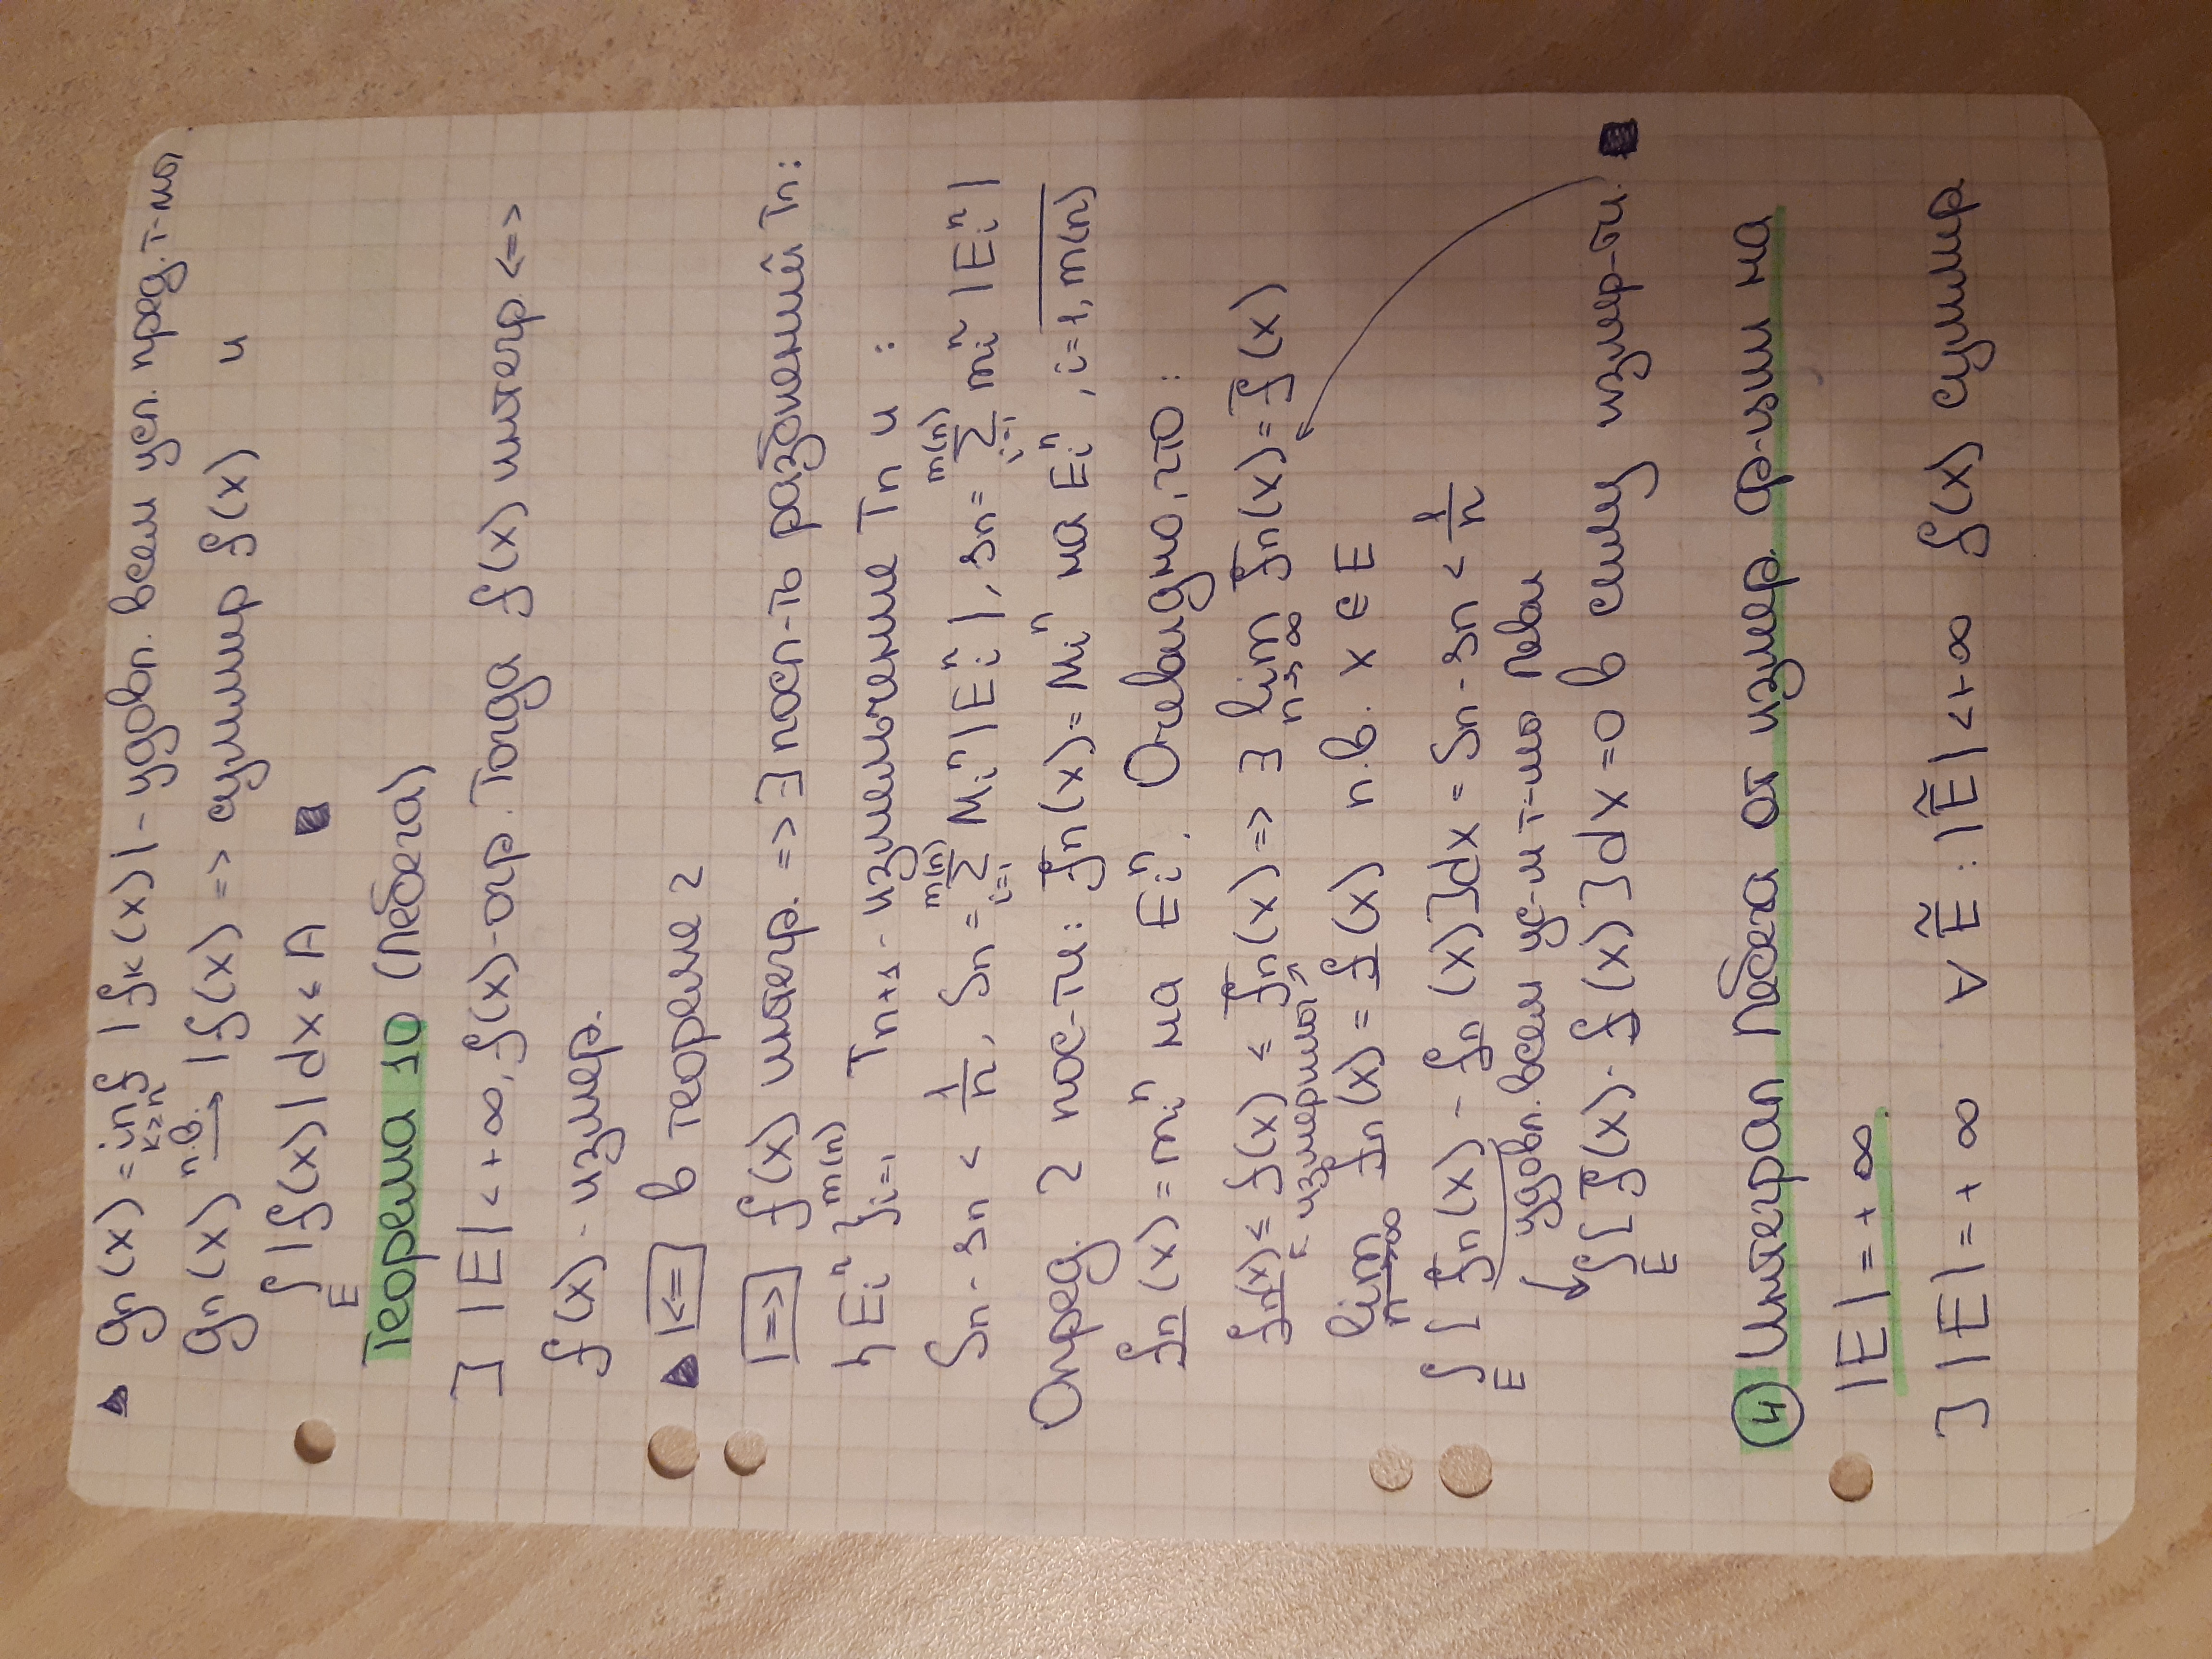 ▶ gn(x) = inf k≥n |fk(x)| - удовл. всем усл. пред. т-мы
gn(x) п.в.→ |f(x)| => суммир f(x) и
∫E |f(x)| dx ≤ A ■
Теорема 10 (Лебега)
] |E| < +∞, f(x) - огр. Тогда f(x) интегр <=>
f(x) - измер.
▶ |<=| в теореме 2
|=>| f(x) интегр. => ∃ посл-ть разбиений Tn:
{Ei^n}i=1^m(n) Tn+1 - измельчение Tn и :
Sn - sn < 1/n, Sn = ∑i=1^m(n) Mi^n |Ei^n|, sn = ∑i=1^m(n) mi^n |Ei^n|
Опред. 2 пос-ти: f̅n(x) = Mi^n на Ei^n, i = 1, m(n)
f̲n(x) = mi^n на Ei^n. Очевидно, что:
f̲n(x) ≤ f(x) ≤ f̅n(x) => ∃ lim n→∞ f̅n(x) = f̅(x)
измеримы
lim n→∞ f̲n(x) = f̲(x) п.в. x ∈ E
∫E [f̅n(x) - f̲n(x)]dx = Sn - sn < 1/n
удовл. всем ус-м т-мы Леви
∫E [f̅(x) - f̲(x)]dx = 0 в силу измер-ти. ■
④ Интеграл Лебега от измер. ф-ции на
|E| = +∞
] |E| = +∞ ∀ Ẽ : |Ẽ| < +∞ f(x) суммир